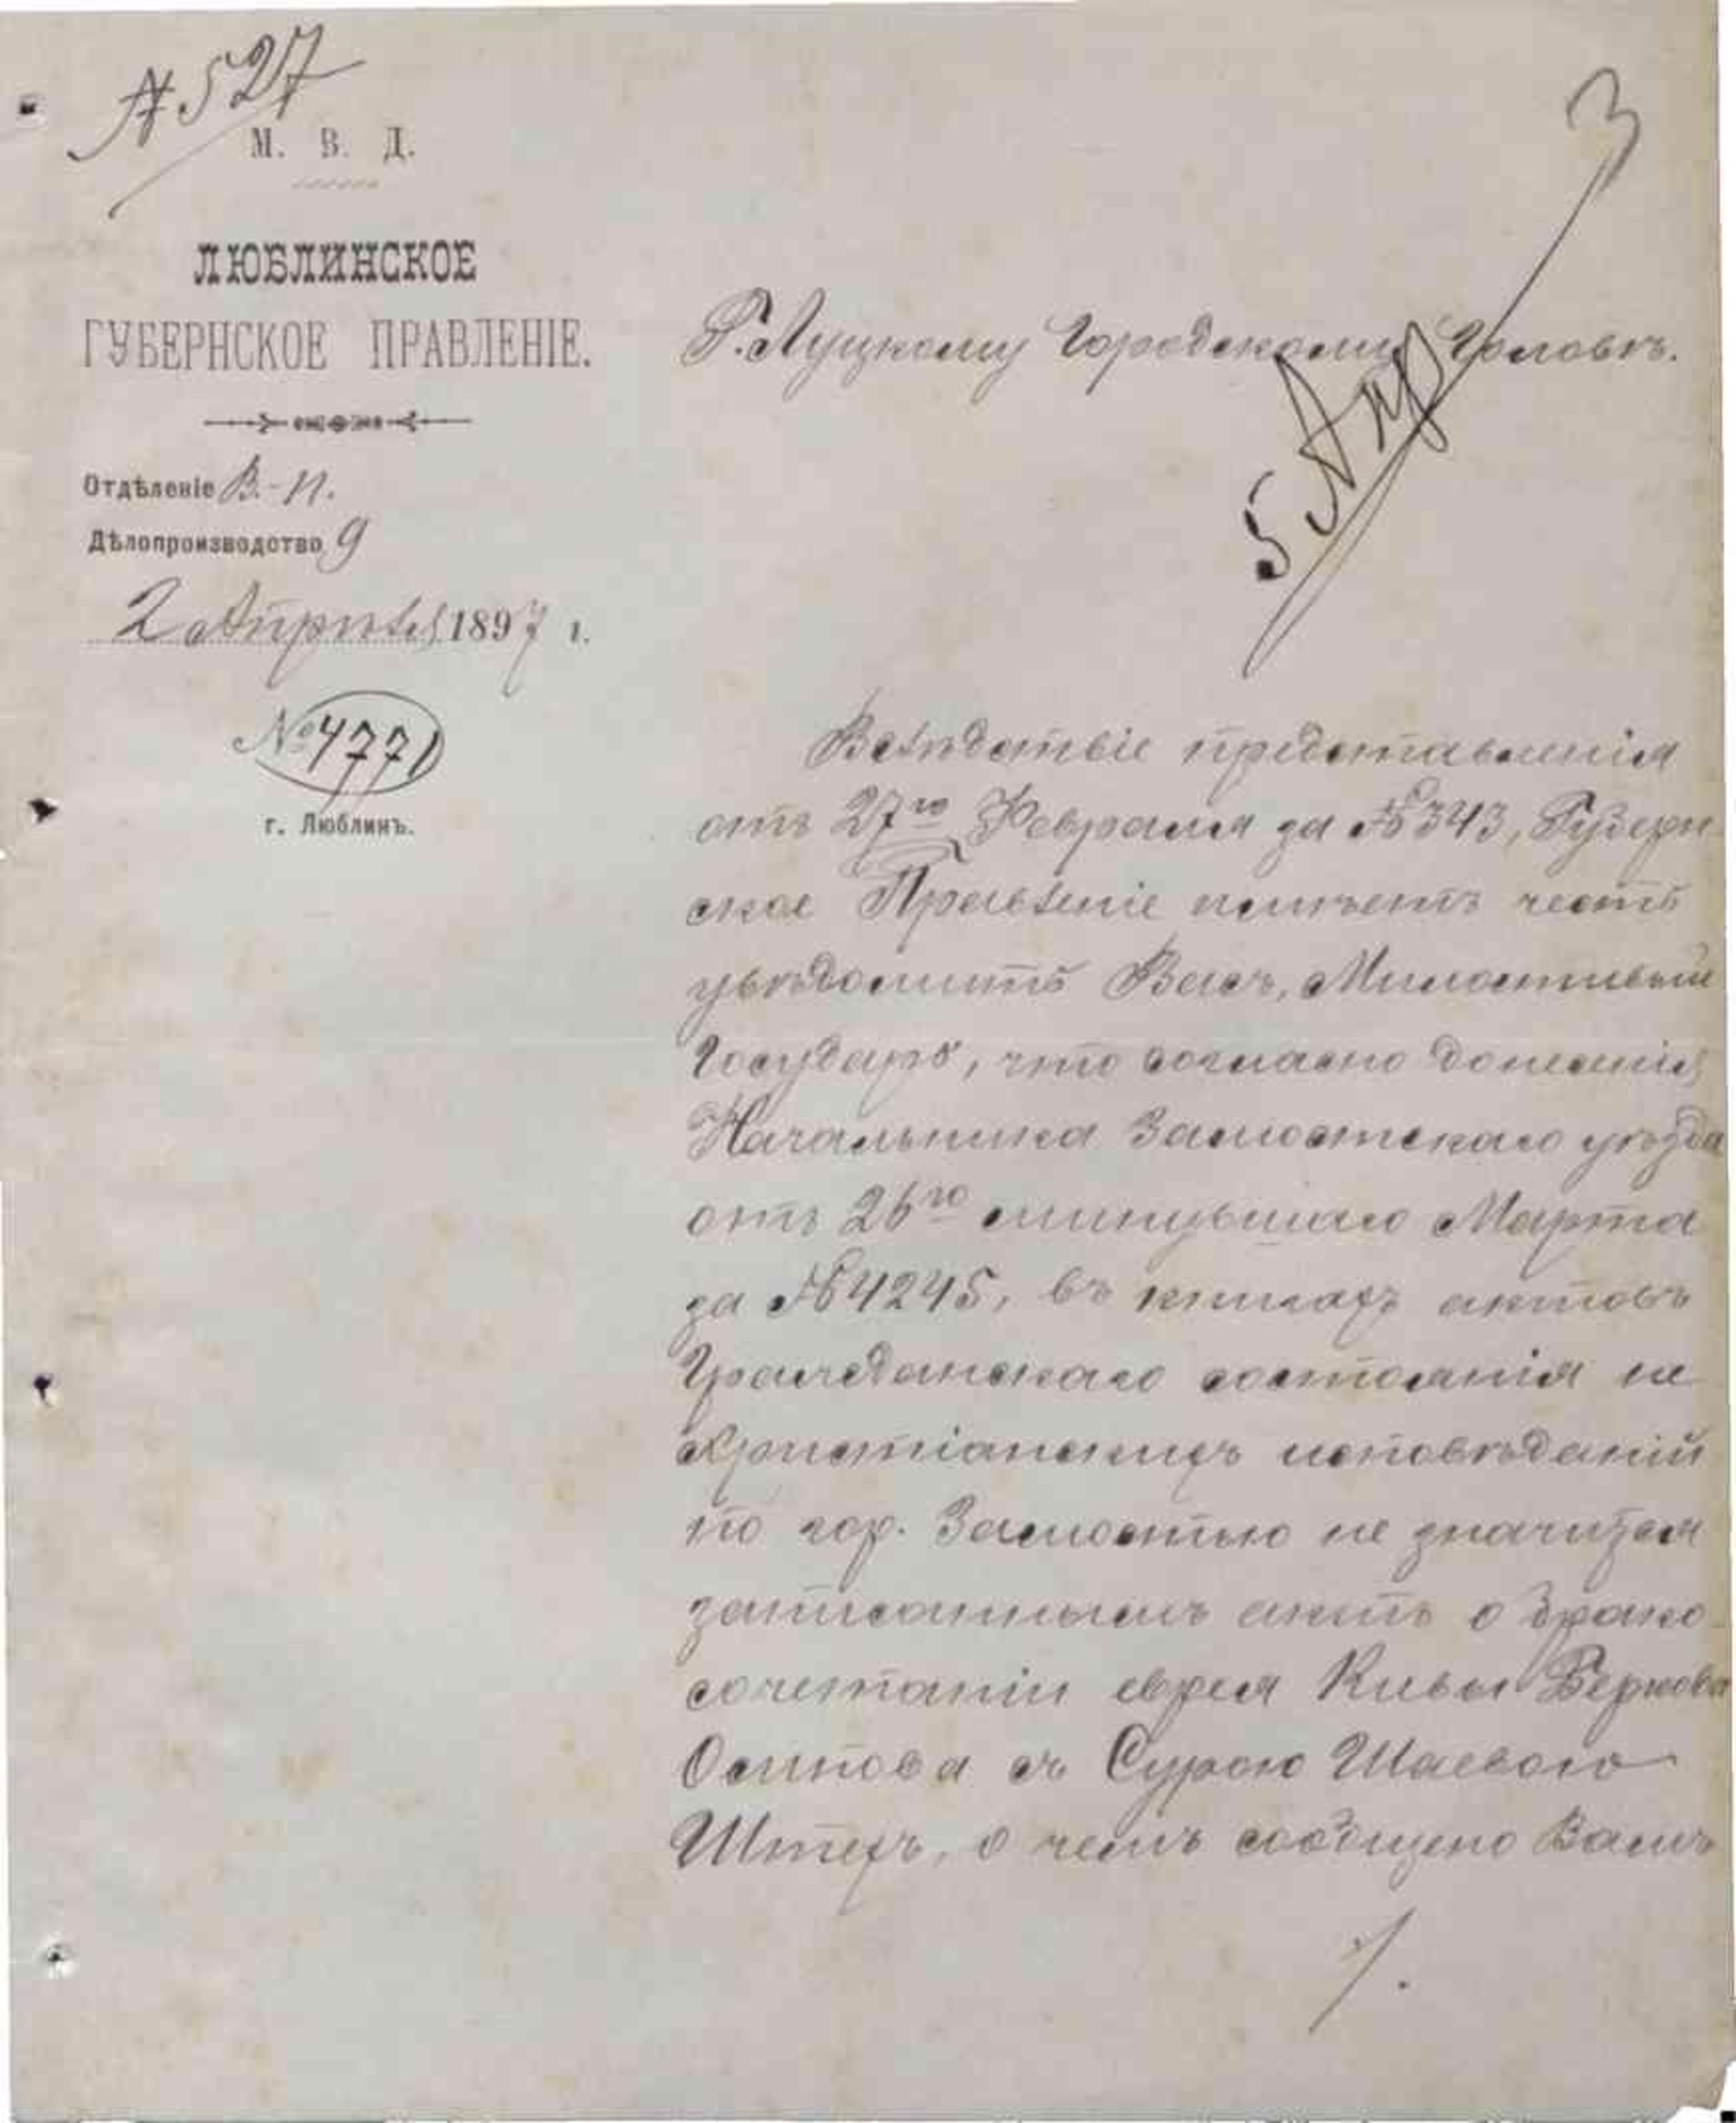 № 527
М. В. Д.
ЛЮБЛИНСКОЕ
ГУБЕРНСКОЕ ПРАВЛЕНІЕ.
Отдѣленіе В.-П.
Дѣлопроизводство 9
2 Апрѣля 1897 г.
№ 4771
г. Люблинъ.
3
Г. Луцкому Городскому Головѣ.
5 Апр
Вслѣдствіе представленія
отъ 27го Февраля за № 343, Губерн-
ское Правленіе имѣетъ честь
увѣдомить Васъ, Милостивый
Государь, что согласно донесенія
Начальника Замостскаго уѣзда
отъ 26го минувшаго Марта
за № 4245, въ книгахъ актовъ
Гражданскаго состоянія не
христіанскихъ исповѣданій
по гор. Замостью не значится
записаннымъ актъ о брако-
сочетаніи еврея Кивы Беркова
Осипова съ Сурою Шаевою
Штехъ, о чемъ сообщено Вамъ